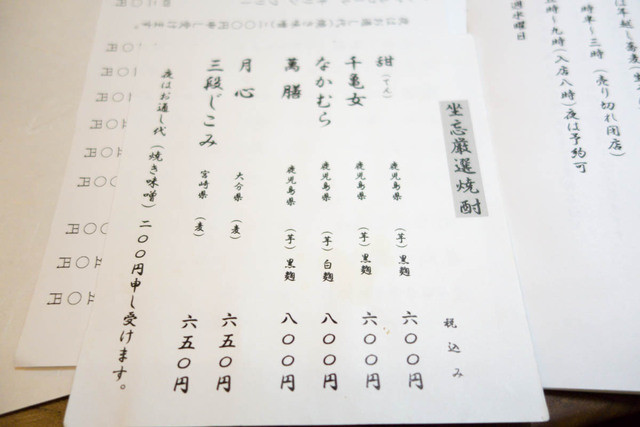 坐忘厳選焼酎
税込み
甜(てん) 鹿児島県 (芋)黒麹 六〇〇円
千亀女 鹿児島県 (芋)黒麹 六〇〇円
なかむら 鹿児島県 (芋)白麹 八〇〇円
萬膳 鹿児島県 (芋)黒麹 八〇〇円
月心 大分県 (麦) 六五〇円
三段じこみ 宮崎県 (麦) 六五〇円
夜はお通し代(焼き味噌)二〇〇円申し受けます。
時半〜三時 (売り切れ閉店)
時〜九時(入店八時)夜は予約可
週水曜日
夜はお通し代(焼き味噌)二〇〇円申し受けます。